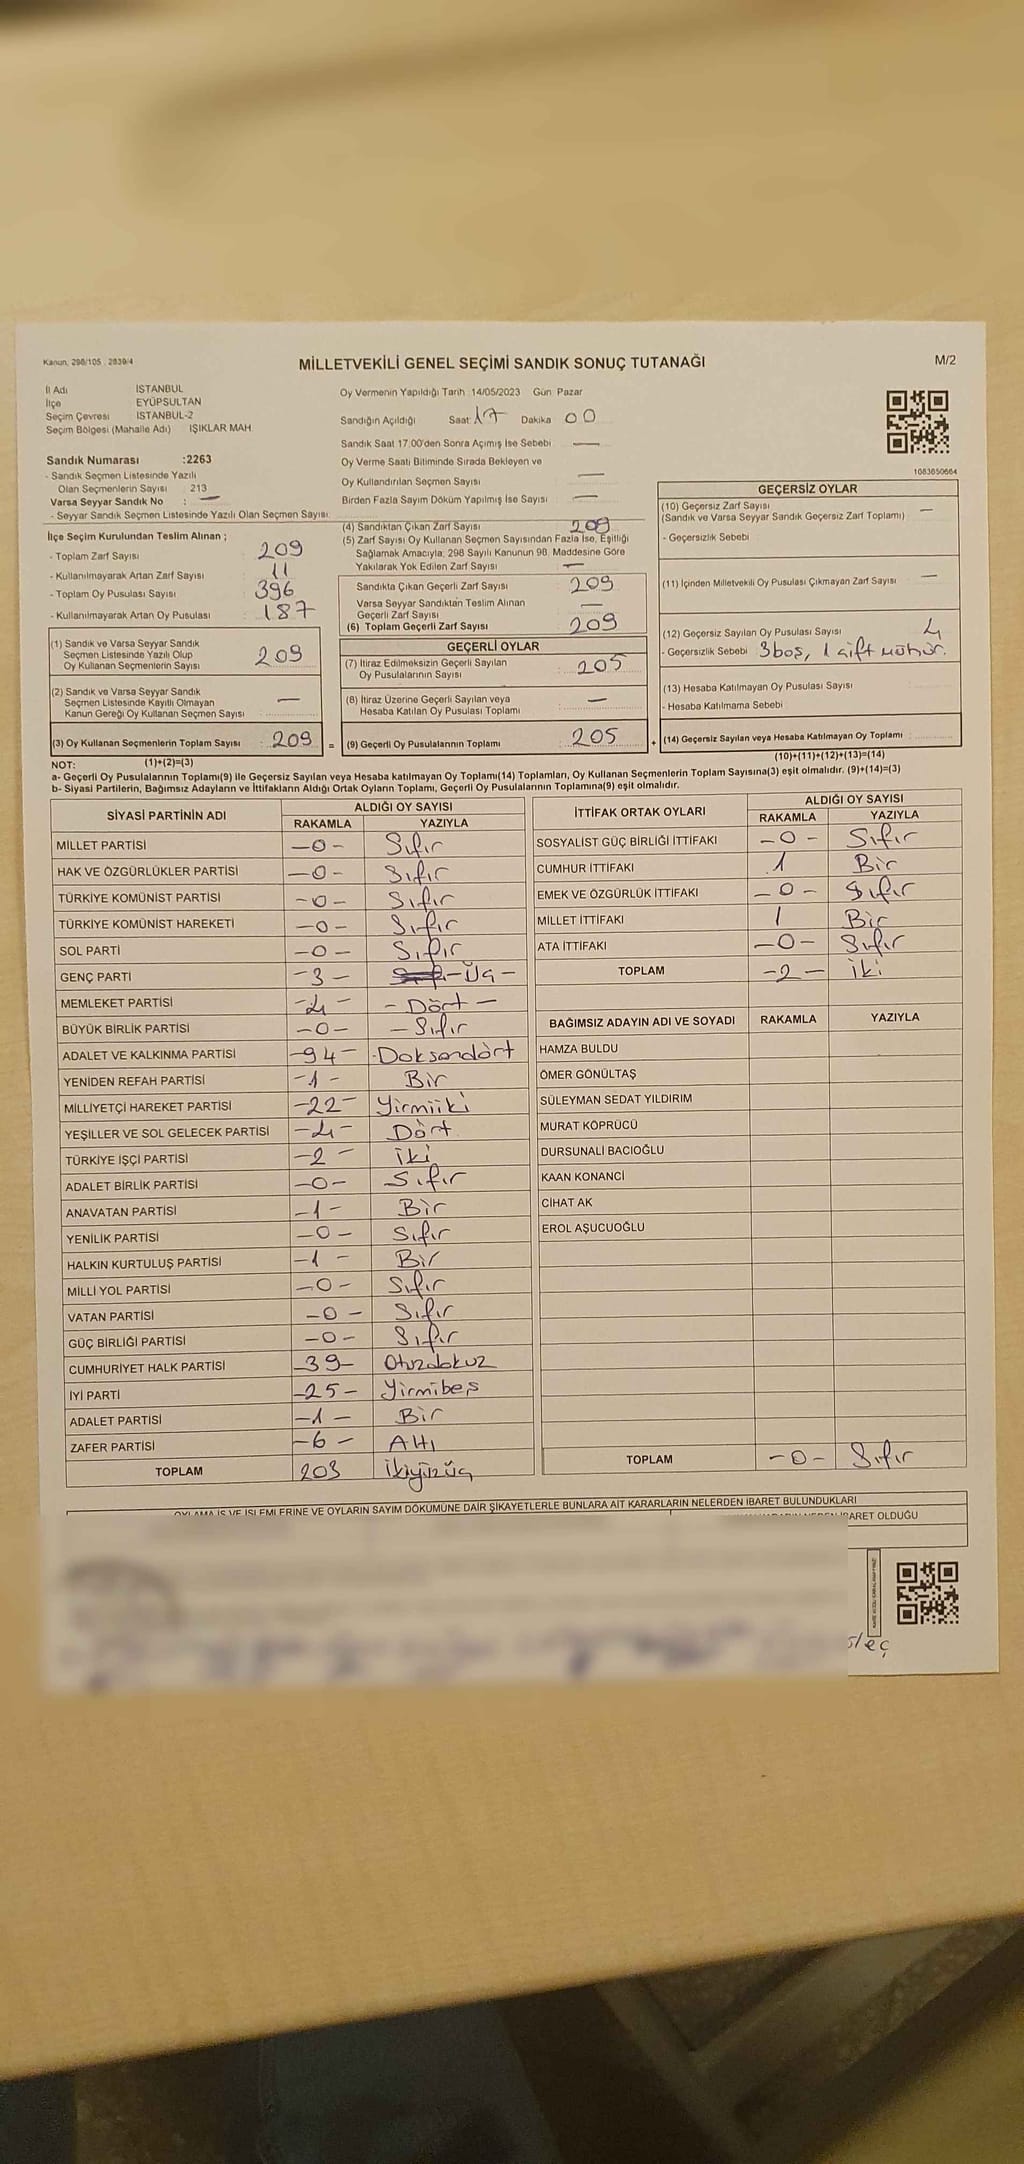 Kanun: 298/105 - 2839/4
MİLLETVEKİLİ GENEL SEÇİMİ SANDIK SONUÇ TUTANAĞI
M/2
İl Adı İSTANBUL
İlçe EYÜPSULTAN
Seçim Çevresi İSTANBUL-2
Seçim Bölgesi (Mahalle Adı) IŞIKLAR MAH
Sandık Numarası :2263
- Sandık Seçmen Listesinde Yazılı
Olan Seçmenlerin Sayısı : 213
Varsa Seyyar Sandık No : —
- Seyyar Sandık Seçmen Listesinde Yazılı Olan Seçmen Sayısı:
Oy Vermenin Yapıldığı Tarih 14/05/2023 Gün Pazar
Sandığın Açıldığı Saat: 17 Dakika 00
Sandık Saat 17.00'den Sonra Açımış İse Sebebi —
Oy Verme Saati Bitiminde Sırada Bekleyen ve
Oy Kullandırılan Seçmen Sayısı —
Birden Fazla Sayım Döküm Yapılmış İse Sayısı —
1083650664
İlçe Seçim Kurulundan Teslim Alınan ;
- Toplam Zarf Sayısı 209
- Kullanılmayarak Artan Zarf Sayısı 11
- Toplam Oy Pusulası Sayısı 396
- Kullanılmayarak Artan Oy Pusulası : 187
(1) Sandık ve Varsa Seyyar Sandık
Seçmen Listesinde Yazılı Olup
Oy Kullanan Seçmenlerin Sayısı 209
(2) Sandık ve Varsa Seyyar Sandık
Seçmen Listesinde Kayıtlı Olmayan
Kanun Gereği Oy Kullanan Seçmen Sayısı —
(3) Oy Kullanan Seçmenlerin Toplam Sayısı : 209 =
(4) Sandıktan Çıkan Zarf Sayısı 209
(5) Zarf Sayısı Oy Kullanan Seçmen Sayısından Fazla İse, Eşitliği
Sağlamak Amacıyla; 298 Sayılı Kanunun 98. Maddesine Göre
Yakılarak Yok Edilen Zarf Sayısı —
Sandıkta Çıkan Geçerli Zarf Sayısı 209
Varsa Seyyar Sandıktan Teslim Alınan
Geçerli Zarf Sayısı —
(6) Toplam Geçerli Zarf Sayısı 209
GEÇERLİ OYLAR
(7) İtiraz Edilmeksizin Geçerli Sayılan
Oy Pusulalarının Sayısı : 205
(8) İtiraz Üzerine Geçerli Sayılan veya
Hesaba Katılan Oy Pusulası Toplamı —
(9) Geçerli Oy Pusulalarının Toplamı : 205 +
GEÇERSİZ OYLAR
(10) Geçersiz Zarf Sayısı
(Sandık ve Varsa Seyyar Sandık Geçersiz Zarf Toplamı) —
- Geçersizlik Sebebi
(11) İçinden Milletvekili Oy Pusulası Çıkmayan Zarf Sayısı —
(12) Geçersiz Sayılan Oy Pusulası Sayısı 4
- Geçersizlik Sebebi 3 boş, 1 çift mühür.
(13) Hesaba Katılmayan Oy Pusulası Sayısı
- Hesaba Katılmama Sebebi
(14) Geçersiz Sayılan veya Hesaba Katılmayan Oy Toplamı :
NOT: (1)+(2)=(3) (10)+(11)+(12)+(13)=(14)
a- Geçerli Oy Pusulalarının Toplamı(9) ile Geçersiz Sayılan veya Hesaba katılmayan Oy Toplamı(14) Toplamları, Oy Kullanan Seçmenlerin Toplam Sayısına(3) eşit olmalıdır. (9)+(14)=(3)
b- Siyasi Partilerin, Bağımsız Adayların ve İttifakların Aldığı Ortak Oyların Toplamı, Geçerli Oy Pusulalarının Toplamına(9) eşit olmalıdır.
SİYASİ PARTİNİN ADI ALDIĞI OY SAYISI
RAKAMLA YAZIYLA
MİLLET PARTİSİ -0- Sıfır
HAK VE ÖZGÜRLÜKLER PARTİSİ -0- Sıfır
TÜRKİYE KOMÜNİST PARTİSİ -0- Sıfır
TÜRKİYE KOMÜNİST HAREKETİ -0- Sıfır
SOL PARTİ -0- Sıfır
GENÇ PARTİ -3- -Üç-
MEMLEKET PARTİSİ -4- -Dört-
BÜYÜK BİRLİK PARTİSİ -0- -Sıfır
ADALET VE KALKINMA PARTİSİ -94- -Doksandört
YENİDEN REFAH PARTİSİ -1- Bir
MİLLİYETÇİ HAREKET PARTİSİ -22- Yirmiiki
YEŞİLLER VE SOL GELECEK PARTİSİ -4- Dört
TÜRKİYE İŞÇİ PARTİSİ -2- iki
ADALET BİRLİK PARTİSİ -0- Sıfır
ANAVATAN PARTİSİ -1- Bir
YENİLİK PARTİSİ -0- Sıfır
HALKIN KURTULUŞ PARTİSİ -1- Bir
MİLLİ YOL PARTİSİ -0- Sıfır
VATAN PARTİSİ -0- Sıfır
GÜÇ BİRLİĞİ PARTİSİ -0- Sıfır
CUMHURİYET HALK PARTİSİ -39- Otuzdokuz
İYİ PARTİ -25- Yirmibeş
ADALET PARTİSİ -1- Bir
ZAFER PARTİSİ -6- Altı
TOPLAM 203 ikiyüzüç
İTTİFAK ORTAK OYLARI ALDIĞI OY SAYISI
RAKAMLA YAZIYLA
SOSYALİST GÜÇ BİRLİĞİ İTTİFAKI -0- Sıfır
CUMHUR İTTİFAKI 1 Bir
EMEK VE ÖZGÜRLÜK İTTİFAKI -0- Sıfır
MİLLET İTTİFAKI 1 Bir
ATA İTTİFAKI -0- Sıfır
TOPLAM -2- iki
BAĞIMSIZ ADAYIN ADI VE SOYADI RAKAMLA YAZIYLA
HAMZA BULDU
ÖMER GÖNÜLTAŞ
SÜLEYMAN SEDAT YILDIRIM
MURAT KÖPRÜCÜ
DURSUNALİ BACIOĞLU
KAAN KONANCİ
CİHAT AK
EROL AŞUCUOĞLU
TOPLAM -0- Sıfır
OYLAMA İŞ VE İŞLEMLERİNE VE OYLARIN SAYIM DÖKÜMÜNE DAİR ŞİKAYETLERLE BUNLARA AİT KARARLARIN NELERDEN İBARET BULUNDUKLARI
OLDUĞU